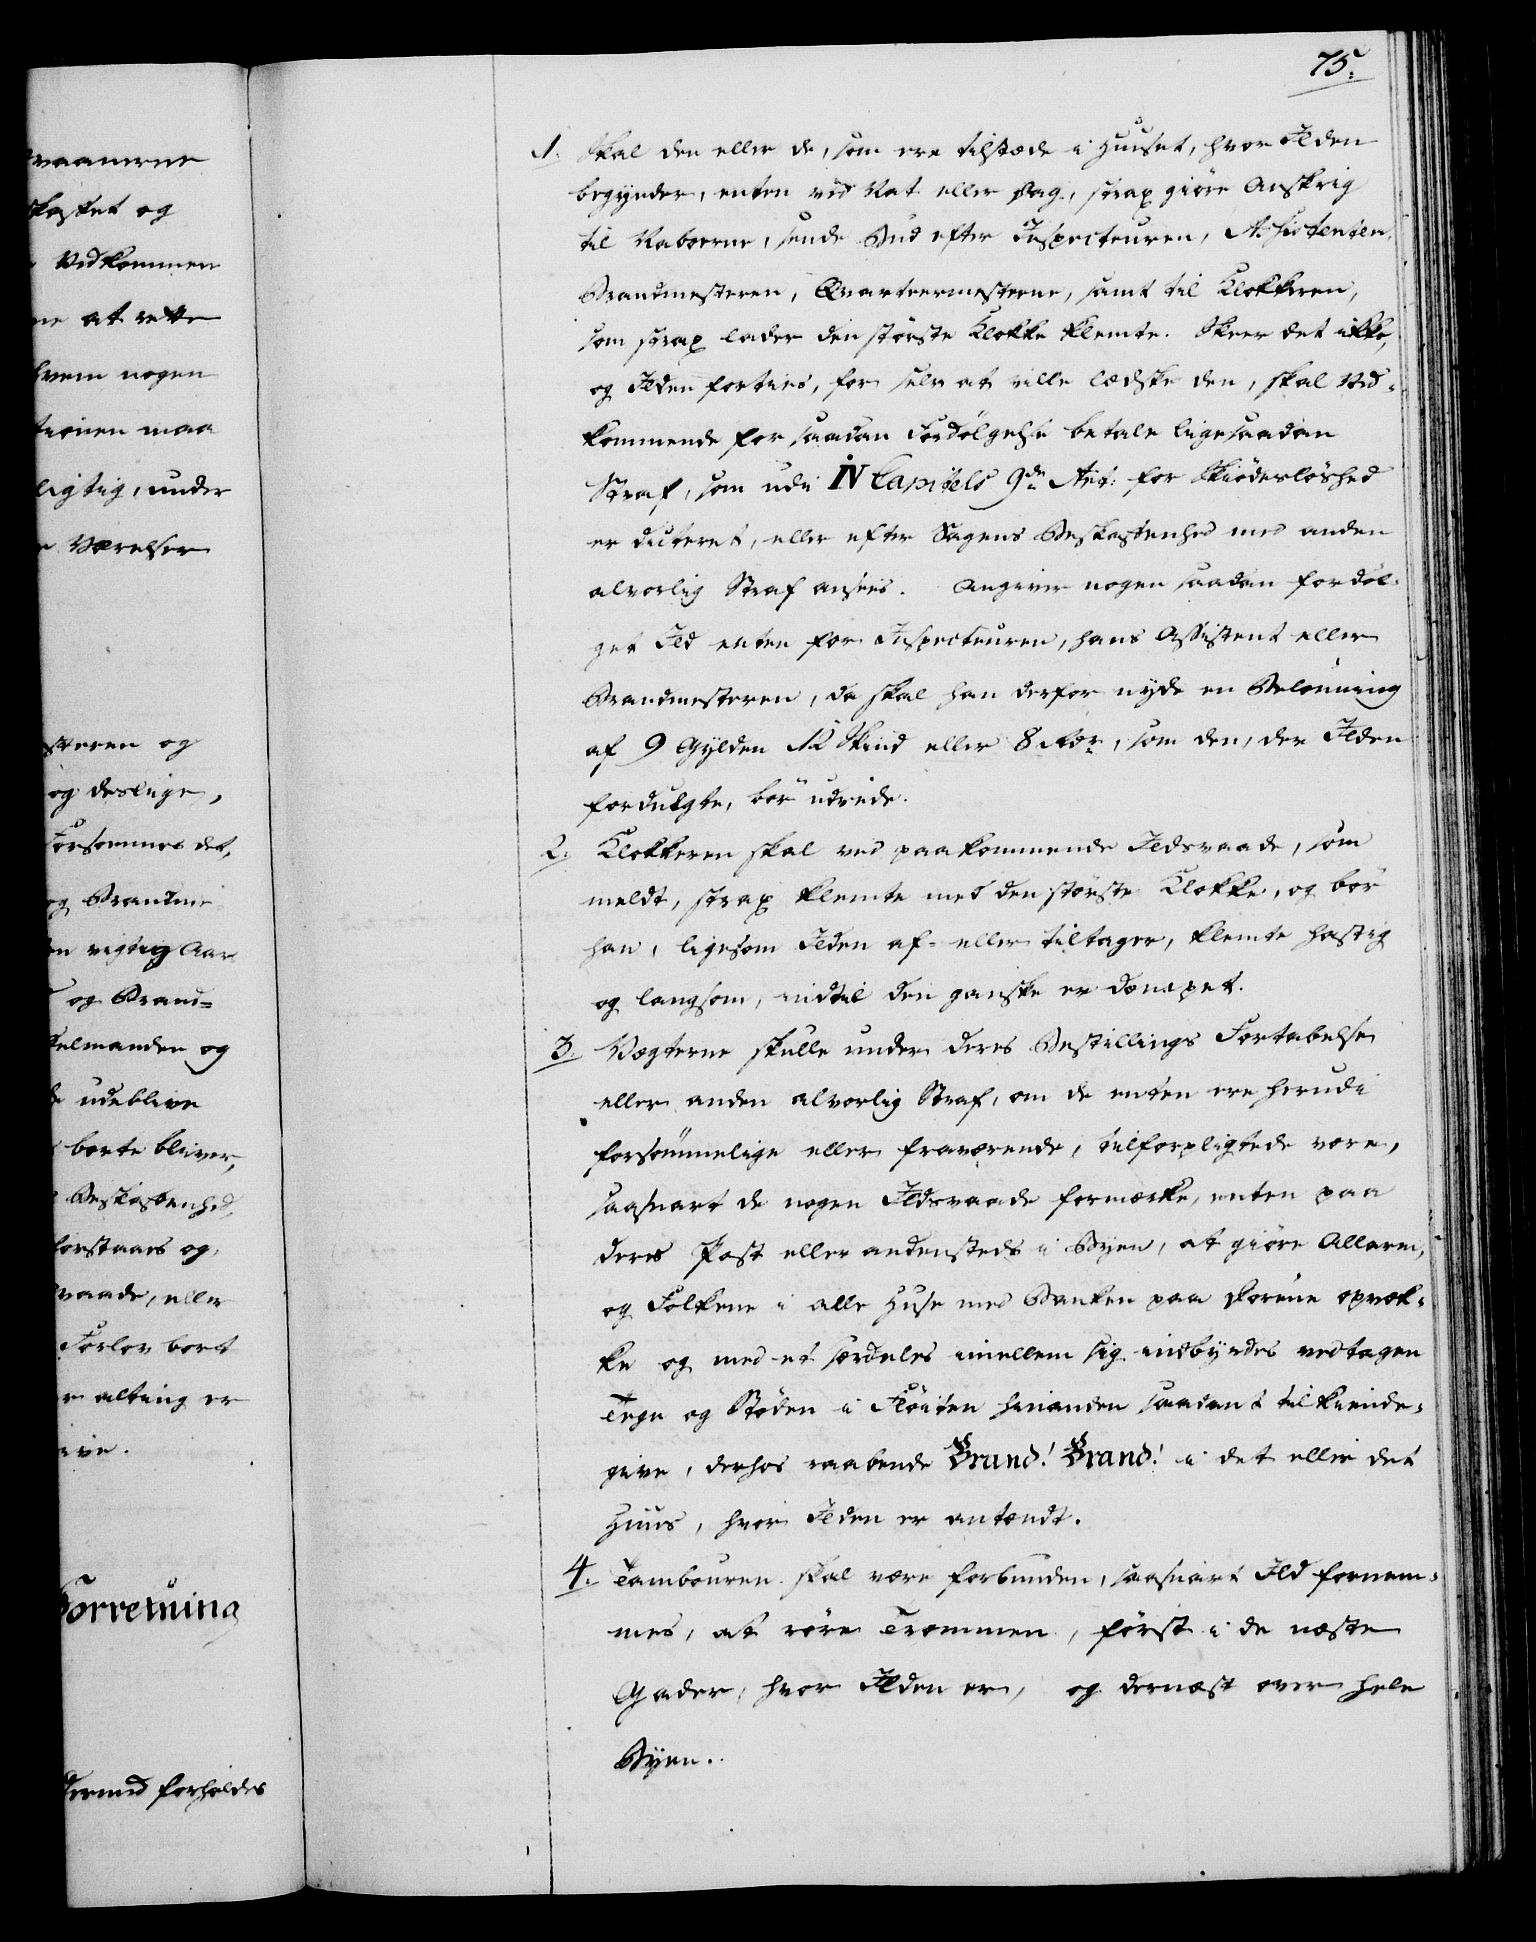 75.
1. Skal den eller de, som ere tilstæde i Huuset, hvor Ilden
begynder, enten ved Nat eller Dag, strax giöre Anskrig
til Naboerne, sende Bud efter Inspecteuren, Assistenten,
Brandmesteren, Qvarteermesterne, samt til Klokkeren,
som strax lader den störste Klokke klemte. Skeer det ikke,
og Ilden forties, for selv at ville ledske den, skal Ved-
kommende for saadan Fordölgelse betale ligesaadan
Straf, som udi IV Capitels 9de Art: for Skiödeslöshed
er dicteret, eller efter Sagens Beskaffenhed med anden
alvorlig Straf ansees. Angiver nogen saadan fordöl-
get Ild enten for Inspecteuren, hans Assistent eller
Brandmesteren, da skal han derfor nyde en Belönning
af 9 Gylden 12 Skind eller 8 Rdr, som den, der Ilden
fordulgte, bör udrede.
2. Klokkeren skal ved paakommende Ildsvaade, som
meldt, strax klemte med den störste Klokke, og bör
han, ligesom Ilden af- eller tiltager, klemte hastig
og langsom, indtil den ganske er dæmpet.
3. Vægterne skulle under deres Bestillings Fortabelse
eller anden alvorlig Straf, om de enten ere herudi
forsömmelige eller fraværende, tilforpligtede være,
saasnart de nogen Ildsvaade formærke, enten paa
deres Post eller andensteds i Byen, at giöre Allarm,
og Folkene i alle Huse med Banken paa Dörene opvæk-
ke og med et særdeles imellem sig indbyrdes vedtagen
Tegn og Stöden i Flöiten hinanden saadant tilkiende-
give, derhos raabende Brand! Brand! i det eller det
Huus, hvor Ilden er antændt.
4. Tambouren skal være forbunden, saasnart Ild fornem-
mes, at röre Trommen, först i de næste
Gader, hvor Ilden er, og dernæst over hele
Byen.
vaanerne
skaffet og
Vedkommen
ne at rette
hvem nogen
tionen maa
ligtig, under
Værelser
steren og
og deslige,
Forsömmes det,
og Brandme
en vigtig Aar
og Brand-
telmanden og
udeblive
borte bliver,
Beskaffenhed,
forstaaes og
vaade, eller
Forlov bort
alting er
ive.
Forretning
dermed forholdes